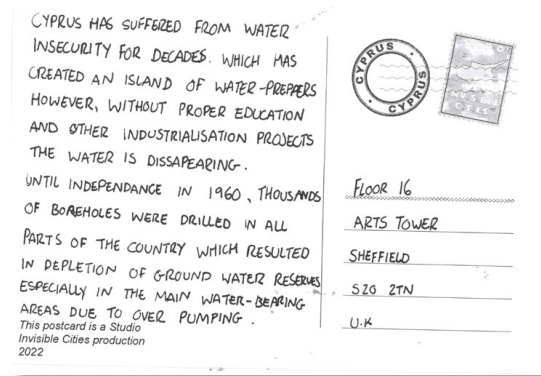 CYPRUS HAS SUFFERED FROM WATER
INSECURITY FOR DECADES. WHICH HAS
CREATED AN ISLAND OF WATER-PREPPERS
HOWEVER, WITHOUT PROPER EDUCATION
AND OTHER INDUSTRIALISATION PROJECTS
THE WATER IS DISSAPEARING.
UNTIL INDEPENDANCE IN 1960, THOUSANDS
OF BOREHOLES WERE DRILLED IN ALL
PARTS OF THE COUNTRY WHICH RESULTED
IN DEPLETION OF GROUND WATER RESERVES
ESPECIALLY IN THE MAIN WATER-BEARING
AREAS DUE TO OVER PUMPING.
This postcard is a Studio
Invisible Cities production
2022
CYPRUS
CYPRUS
CITIES
FLOOR 16
ARTS TOWER
SHEFFIELD
S20 2TN
U.K